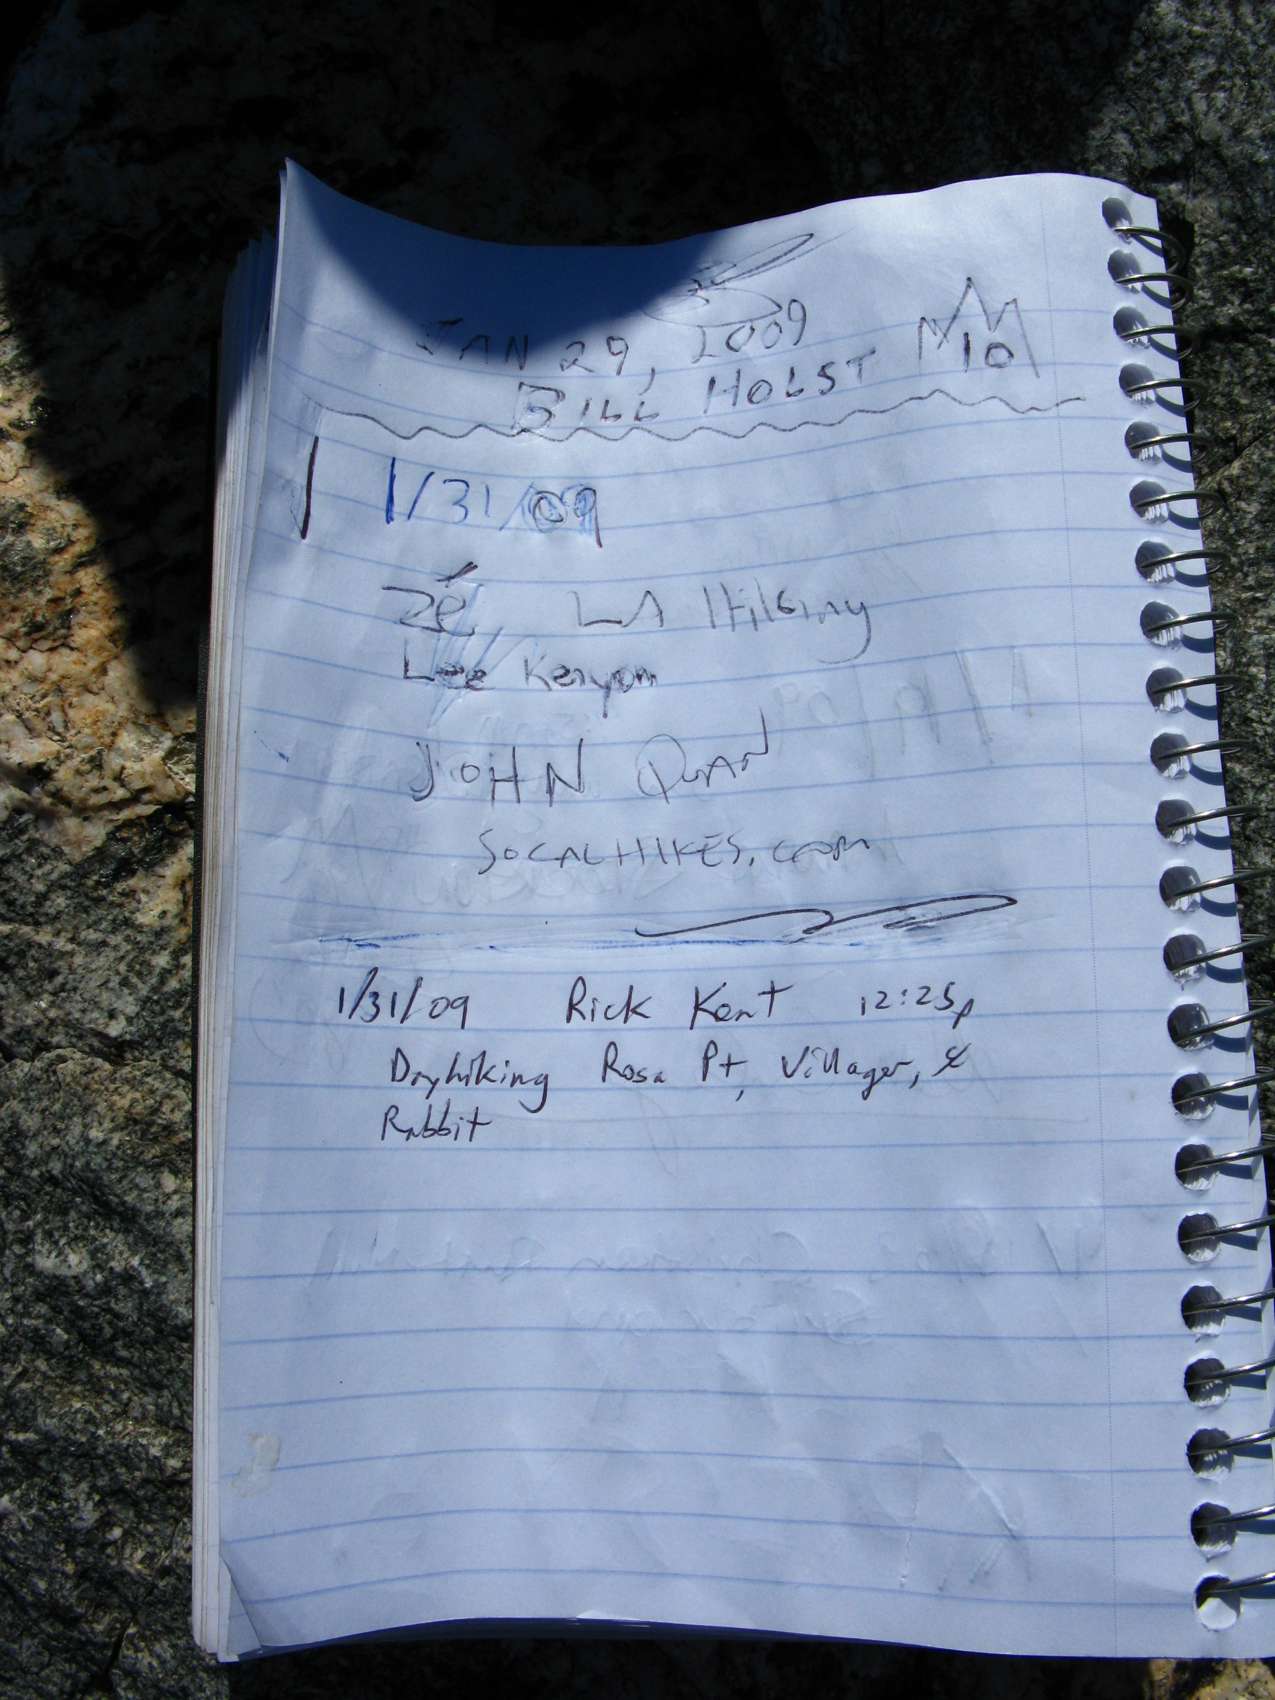 JAN 29, 2009
BILL HOLST 10
1/31/09
Zé LA
Lee Kenyon
JOHN QUAN
SOCALHIKES.COM
1/31/09 Rick Kent 12:25p
Dayhiking Rosa Pt, Villager, &
Rabbit